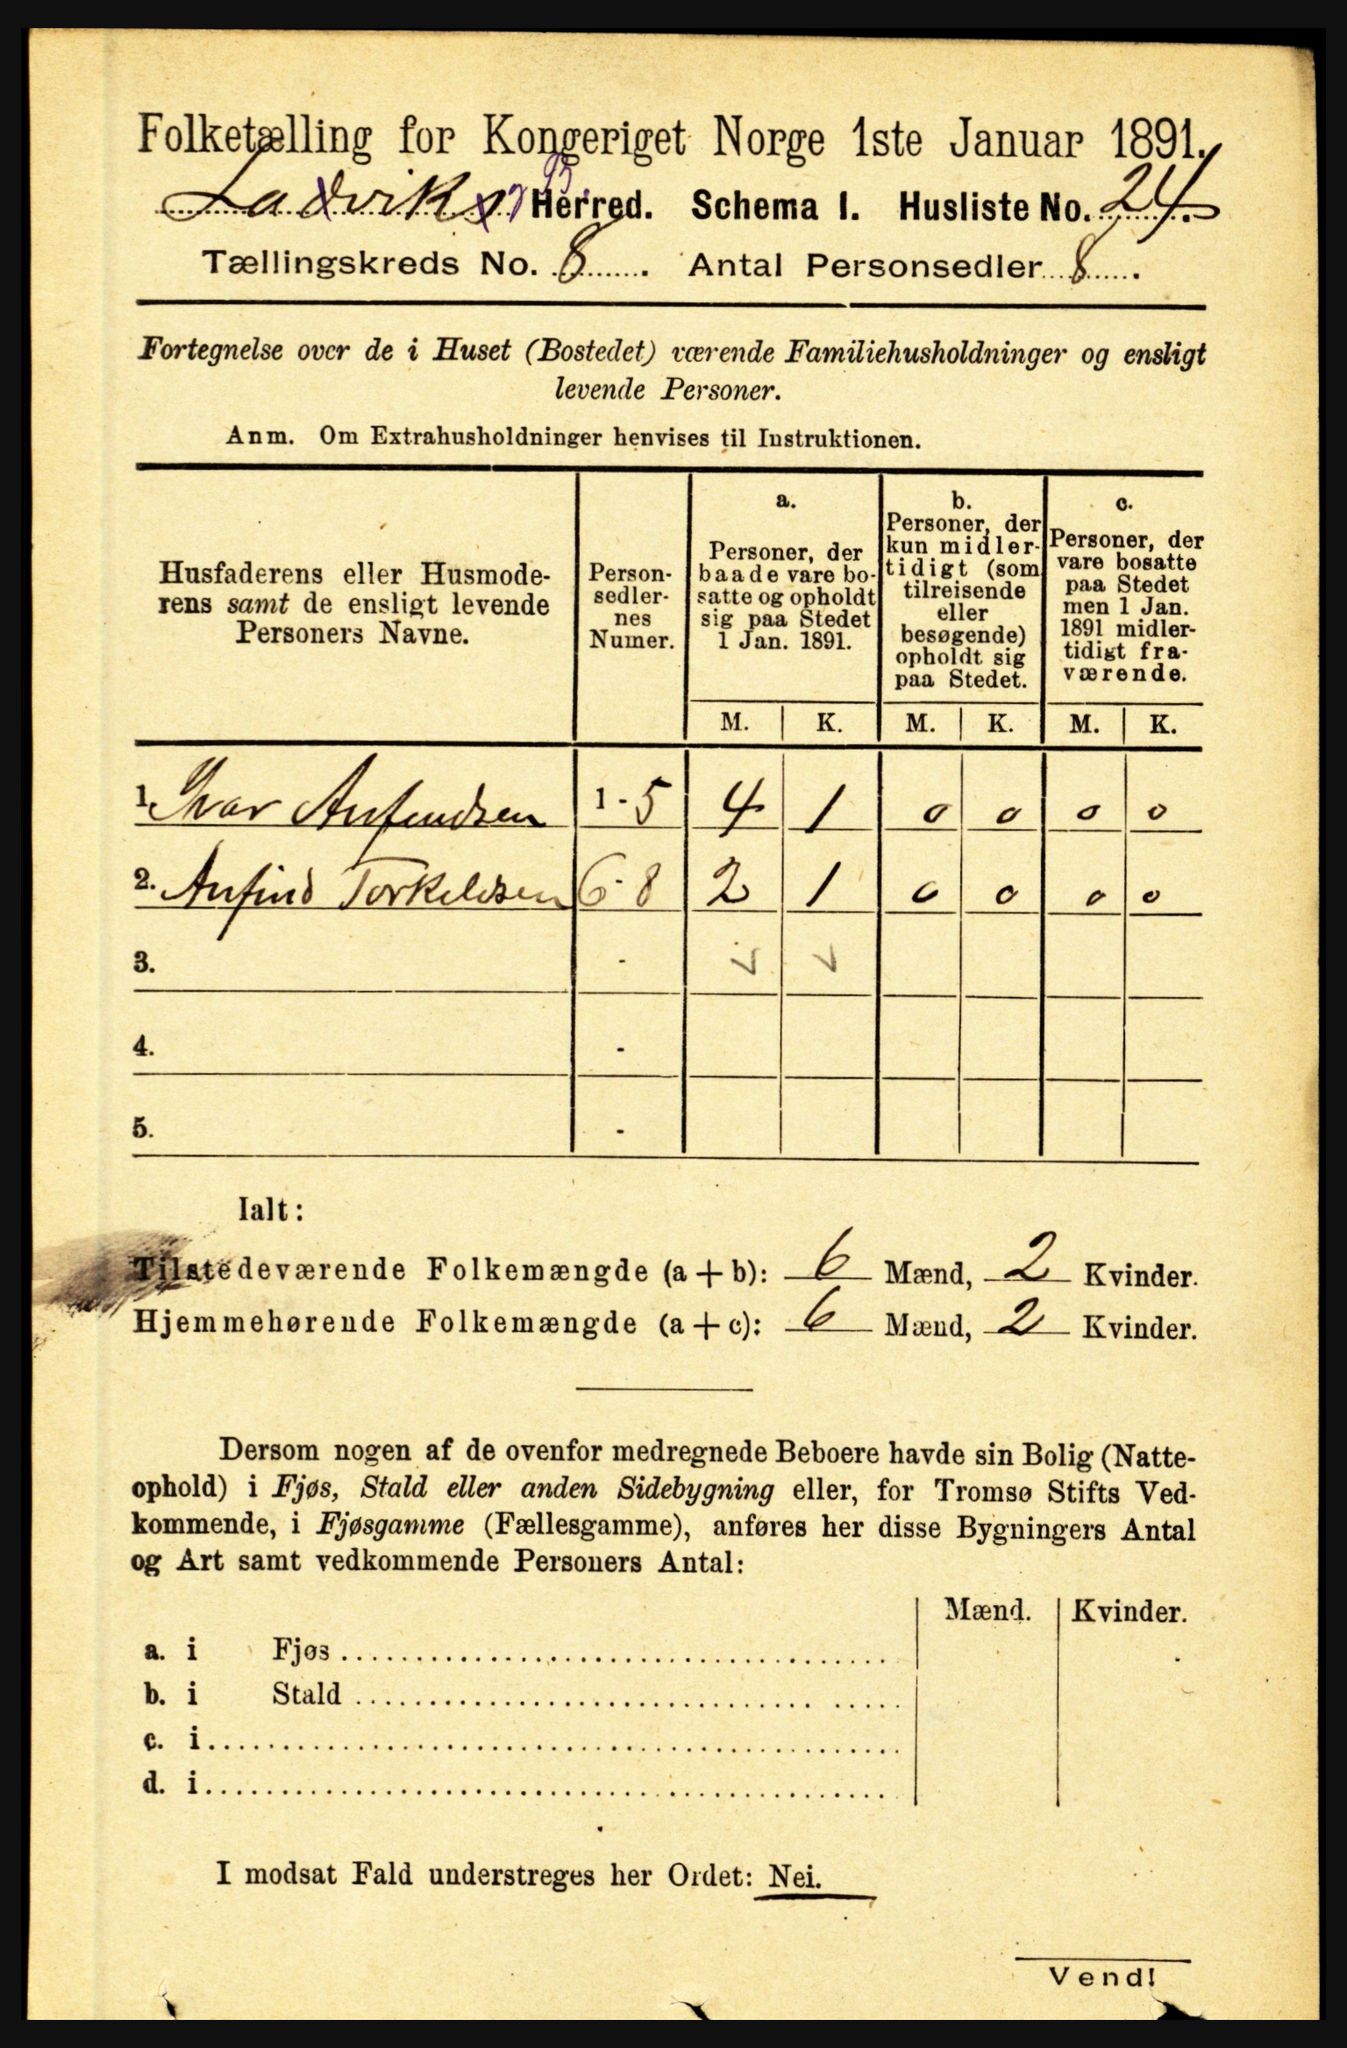 Folketælling for Kongeriget Norge 1ste Januar 1891.
Ladviks Herred. Schema I. Husliste No. 24.
Tællingskreds No. 8. Antal Personsedler 8.
Fortegnelse over de i Huset (Bostedet) værende Familiehusholdninger og ensligt
levende Personer.
Anm. Om Extrahusholdninger henvises til Instruktionen.
Husfaderens eller Husmode-
rens samt de ensligt levende
Personers Navne.
Person-
sedler-
nes
Numer.
a.
Personer, der
baade vare bo-
satte og opholdt
sig paa Stedet
1 Jan. 1891.
b.
Personer, der
kun midler-
tidigt (som
tilreisende
eller
besøgende)
opholdt sig
paa Stedet.
c.
Personer, der
vare bosatte
paa Stedet
men 1 Jan.
1891 midler-
tidigt fra-
værende.
M. K. M. K. M. K.
1. Ivar Anfindsen 1 - 5 4 1 0 0 0 0
2. Anfind Torkeldsen 6 - 8 2 1 0 0 0 0
3. -
4. -
5. -
Ialt:
Tilstedeværende Folkemængde (a + b): 6 Mænd, 2 Kvinder.
Hjemmehørende Folkemængde (a + c): 6 Mænd, 2 Kvinder.
Dersom nogen af de ovenfor medregnede Beboere havde sin Bolig (Natte-
ophold) i Fjøs, Stald eller anden Sidebygning eller, for Tromsø Stifts Ved-
kommende, i Fjøsgamme (Fællesgamme), anføres her disse Bygningers Antal
og Art samt vedkommende Personers Antal:
Mænd. Kvinder.
a. i Fjøs
b. i Stald
c. i
d. i
I modsat Fald understreges her Ordet: Nei.
Vend!